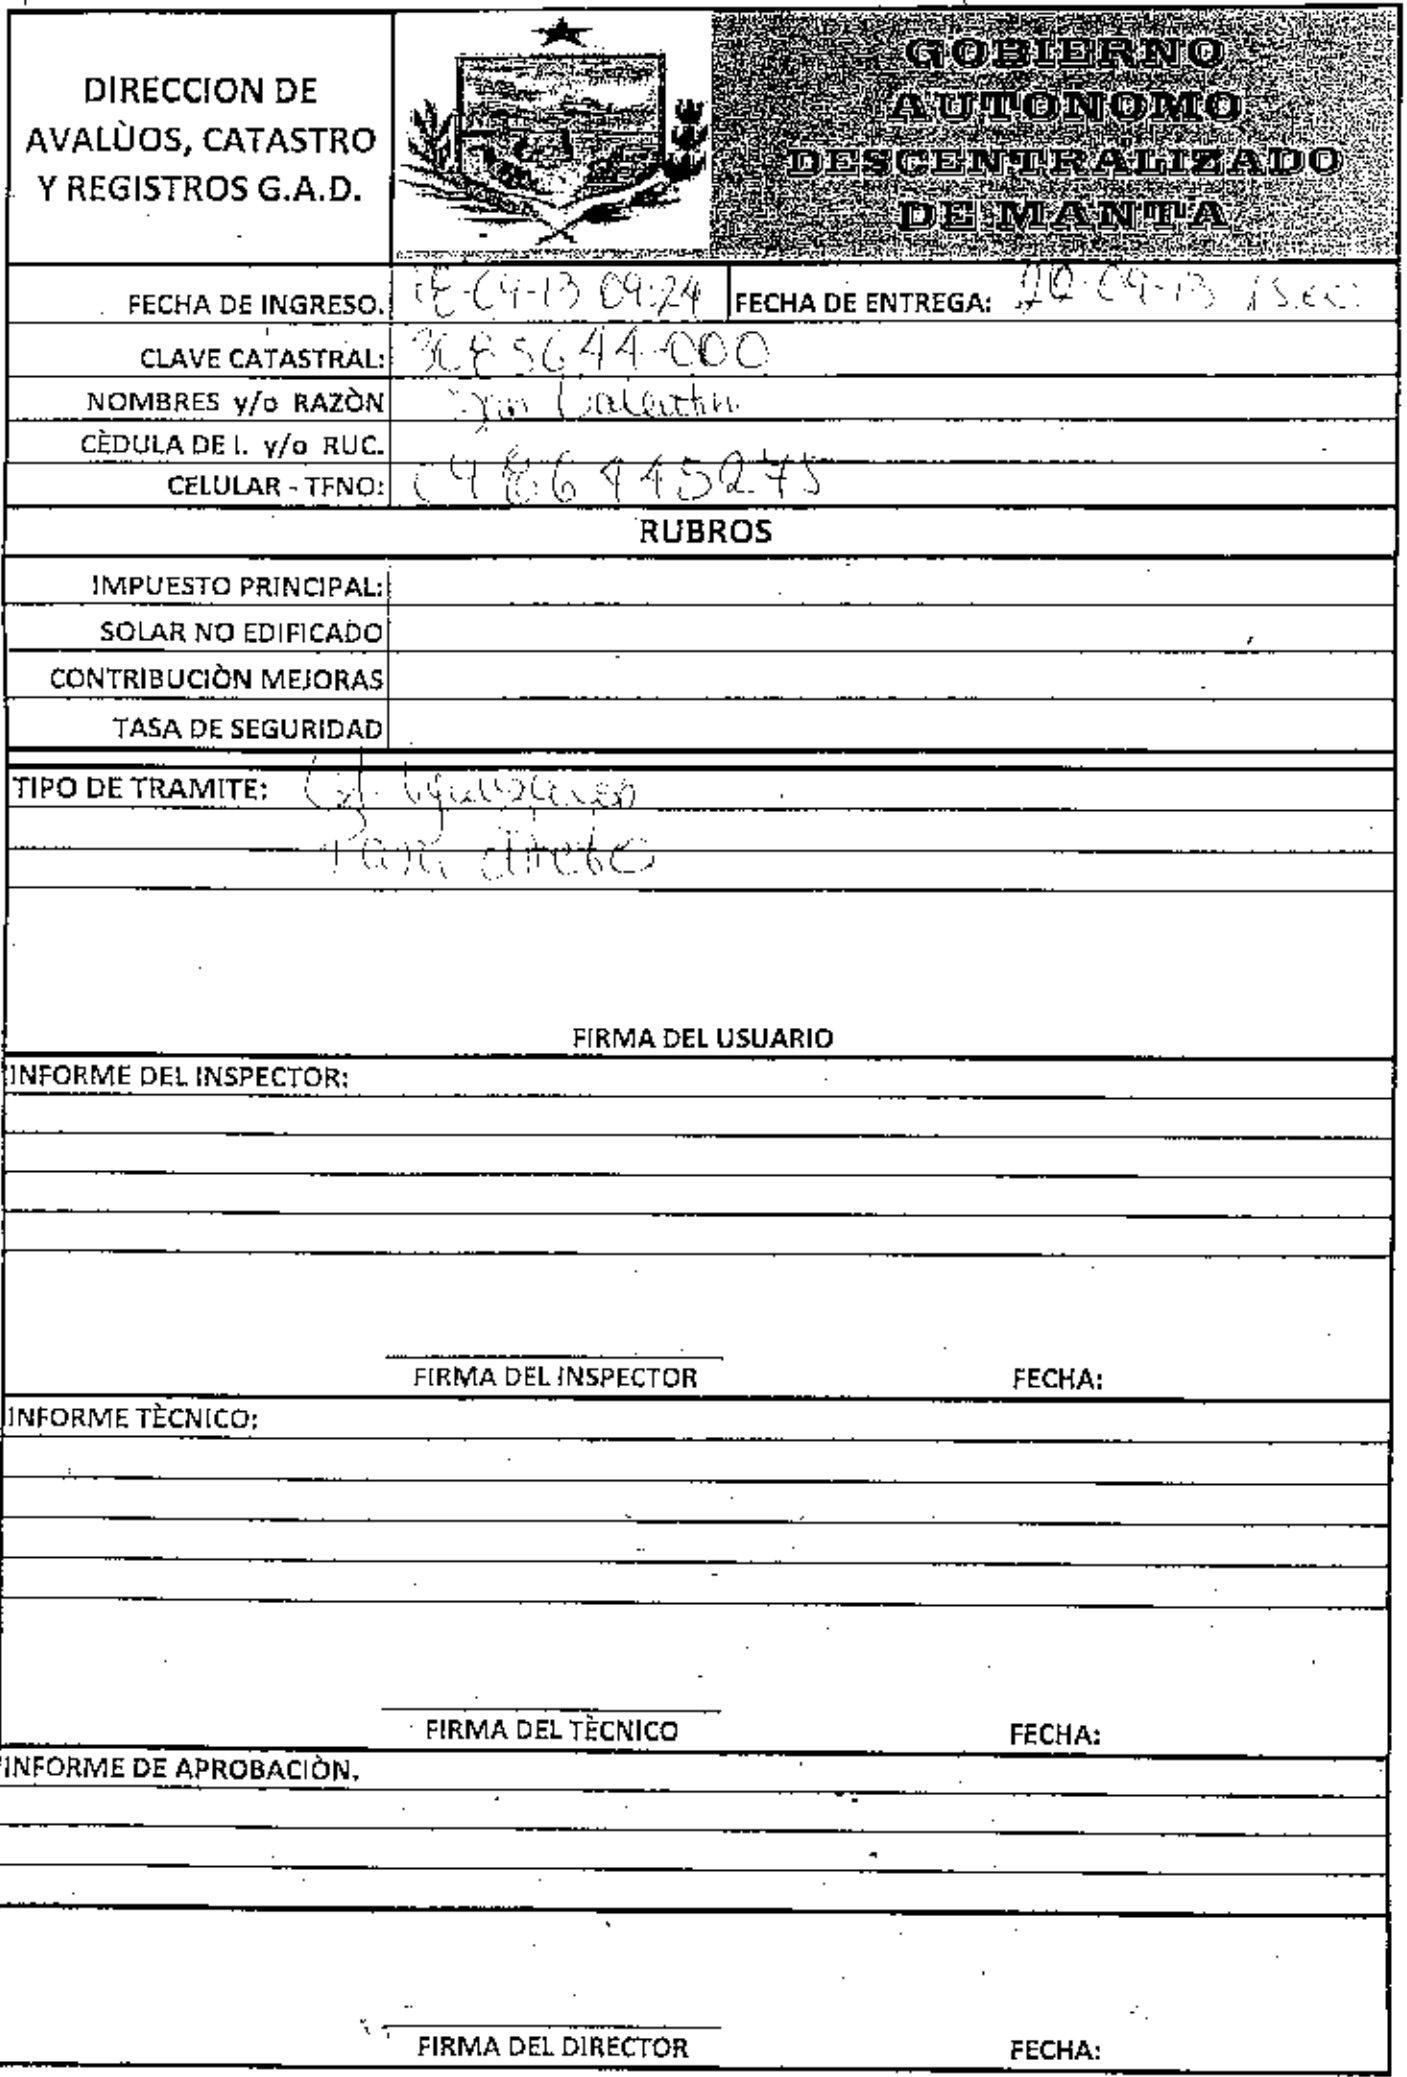 DIRECCION DE
AVALÙOS, CATASTRO
Y REGISTROS G.A.D.
GOBIERNO
AUTONOMO
DESCENTRALIZADO
DE MANTA
FECHA DE INGRESO. 09:24 FECHA DE ENTREGA:
CLAVE CATASTRAL:
NOMBRES y/o RAZÒN
CÈDULA DE I. y/o RUC.
CELULAR - TFNO:
RUBROS
IMPUESTO PRINCIPAL:
SOLAR NO EDIFICADO
CONTRIBUCIÒN MEJORAS
TASA DE SEGURIDAD
TIPO DE TRAMITE:
FIRMA DEL USUARIO
INFORME DEL INSPECTOR:
FIRMA DEL INSPECTOR FECHA:
INFORME TÈCNICO:
FIRMA DEL TÈCNICO FECHA:
INFORME DE APROBACIÒN.
FIRMA DEL DIRECTOR FECHA: